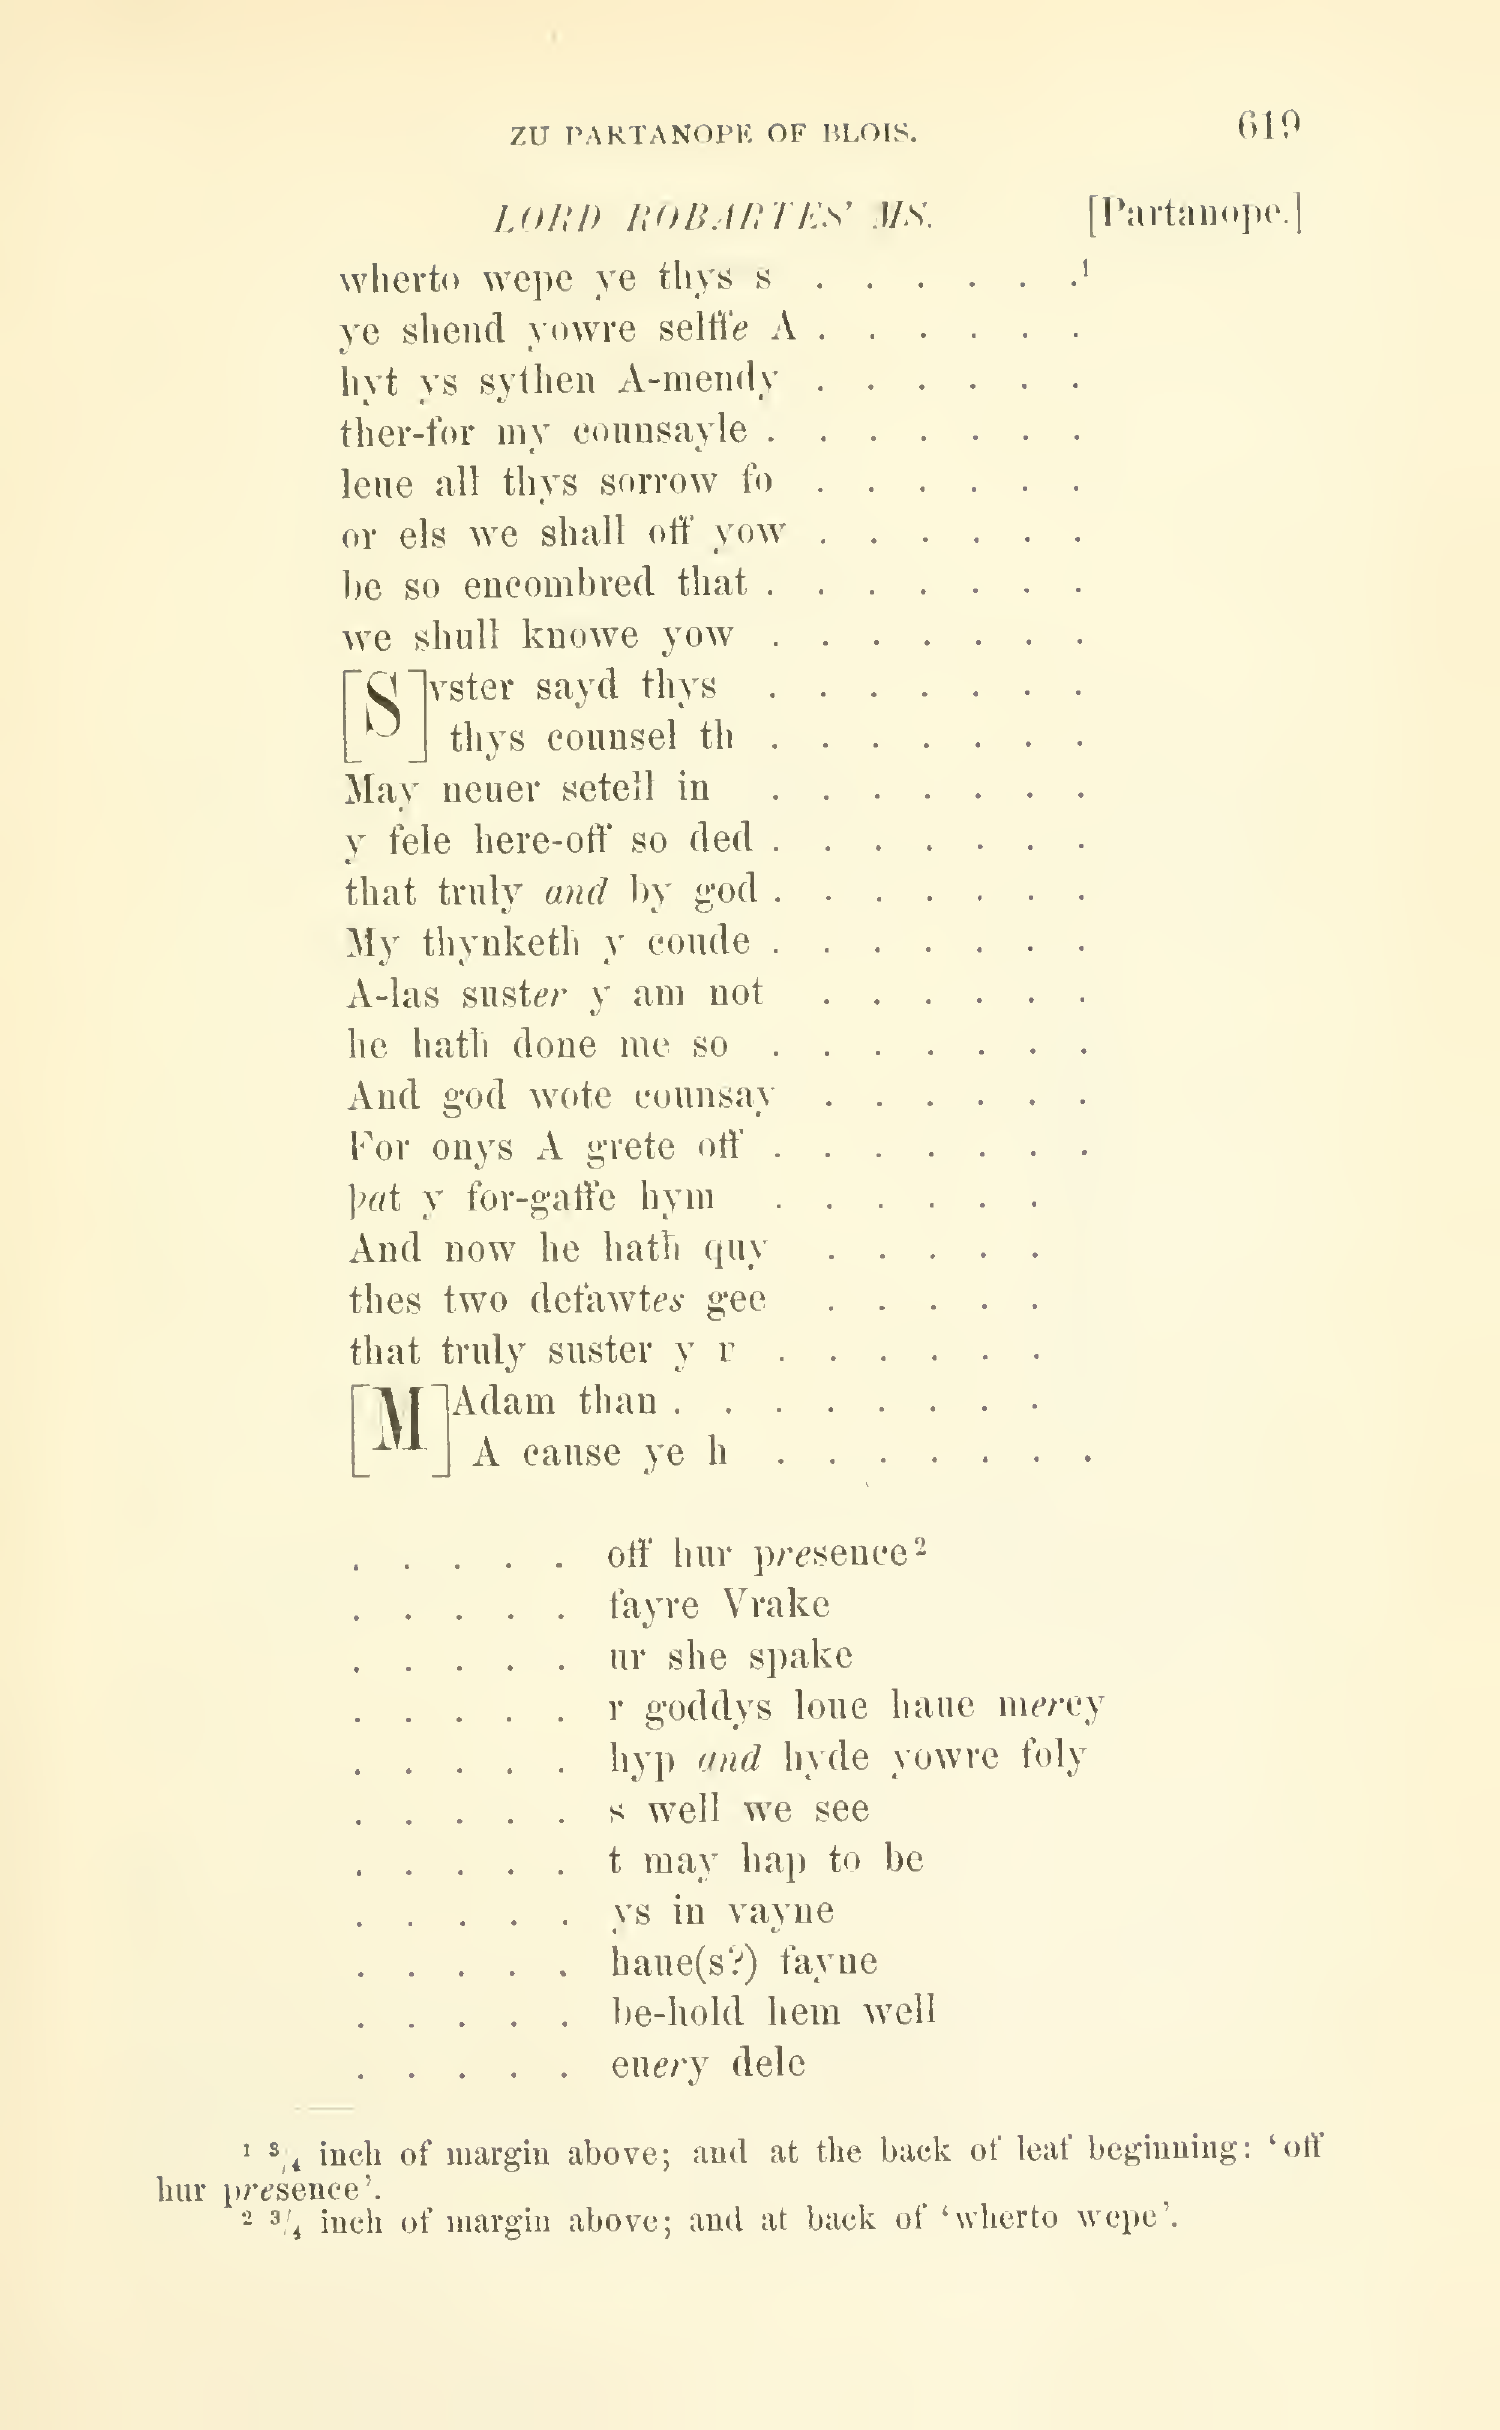 ZU PARTANOPE OF BLOIS. 619
LORD ROBARTES' MS. [Partanope.]
wherto wepe ye thys s . . . . . .¹
ye shend yowre selffe A . . . . . .
hyt ys sythen A-mendy . . . . . .
ther-for my counsayle . . . . . . .
leue all thys sorrow fo . . . . . .
or els we shall off yow . . . . . .
be so encombred that . . . . . . .
we shull knowe yow . . . . . . .
[S]yster sayd thys . . . . . . .
thys counsel th . . . . . . .
May neuer setell in . . . . . . .
y fele here-off so ded . . . . . . .
that truly and by god . . . . . . .
My thynketh y coude . . . . . . .
A-las suster y am not . . . . . .
he hath done me so . . . . . . .
And god wote counsay . . . . . .
For onys A grete off . . . . . . .
þat y for-gaffe hym . . . . . .
And now he hath quy . . . . .
thes two defawtes gee . . . . .
that truly suster y r . . . . . .
[M]Adam than . . . . . . . .
A cause ye h . . . . . . .
. . . . . off hur presence²
. . . . . fayre Vrake
. . . . . ur she spake
. . . . . r goddys loue haue mercy
. . . . . hyp and hyde yowre foly
. . . . . s well we see
. . . . . t may hap to be
. . . . . ys in vayne
. . . . . haue(s?) fayne
. . . . . be-hold hem well
. . . . . euery dele
¹ ³/₄ inch of margin above; and at the back of leaf beginning: ‘off
hur presence’.
² ³/₄ inch of margin above; and at back of ‘wherto wepe’.